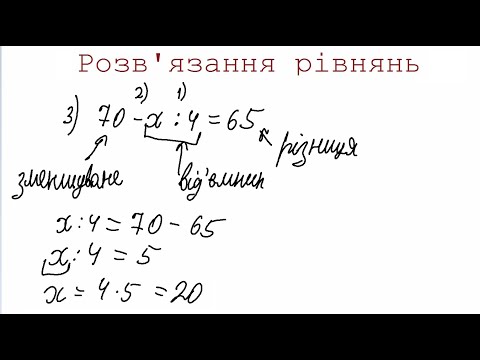 Розв'язання рівнянь
2) 1)
3) 70 - x : 4 = 65
різниця
зменшуване від'ємник
x : 4 = 70 - 65
x : 4 = 5
x = 4 · 5 = 20